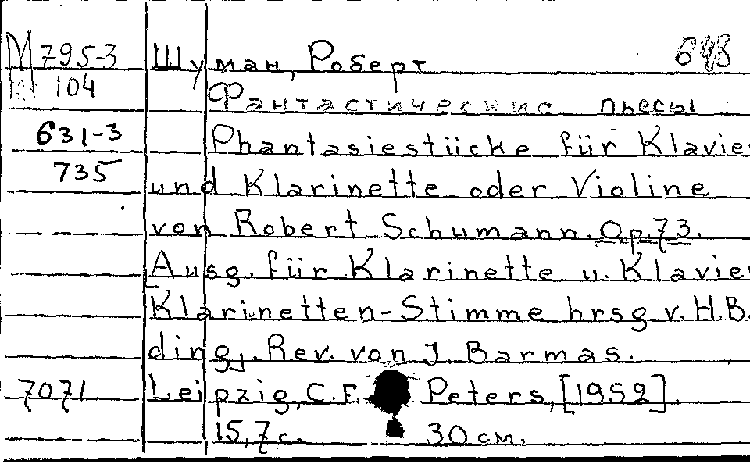 М 795-3 Шуман, Роберт 643
104 Фантастические пьесы
631-3 Phantasiestücke für Klavie
735 und Klarinette oder Violine
von Robert Schumann. Op.73.
Ausg. für Klarinette u. Klavie
Klarinetten-Stimme hrsg v. H.B.
ding, Rev. von J. Barmas.
7071 Leipzig, C.F. Peters, [1952].
15,7 с. 30 см.